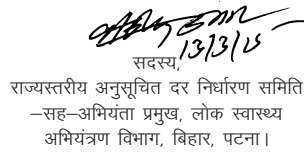 13/3/15
सदस्य,
राज्यस्तरीय अनुसूचित दर निर्धारण समिति
–सह–अभियंता प्रमुख, लोक स्वास्थ्य
अभियंत्रण विभाग, बिहार, पटना।